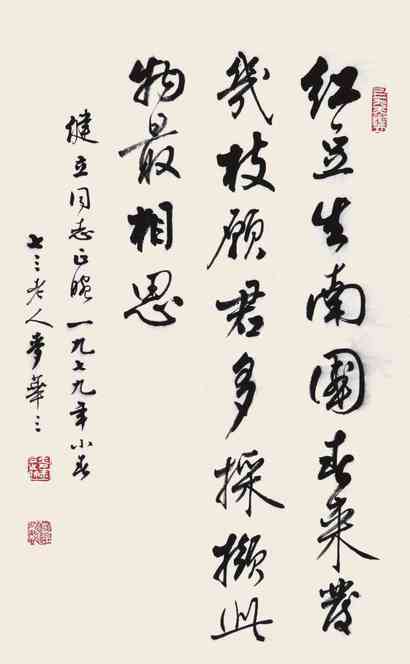 红豆生南国春来发
几枝愿君多採撷此
物最相思
健立同志正腕 一九七九年小春
七三老人麦华三